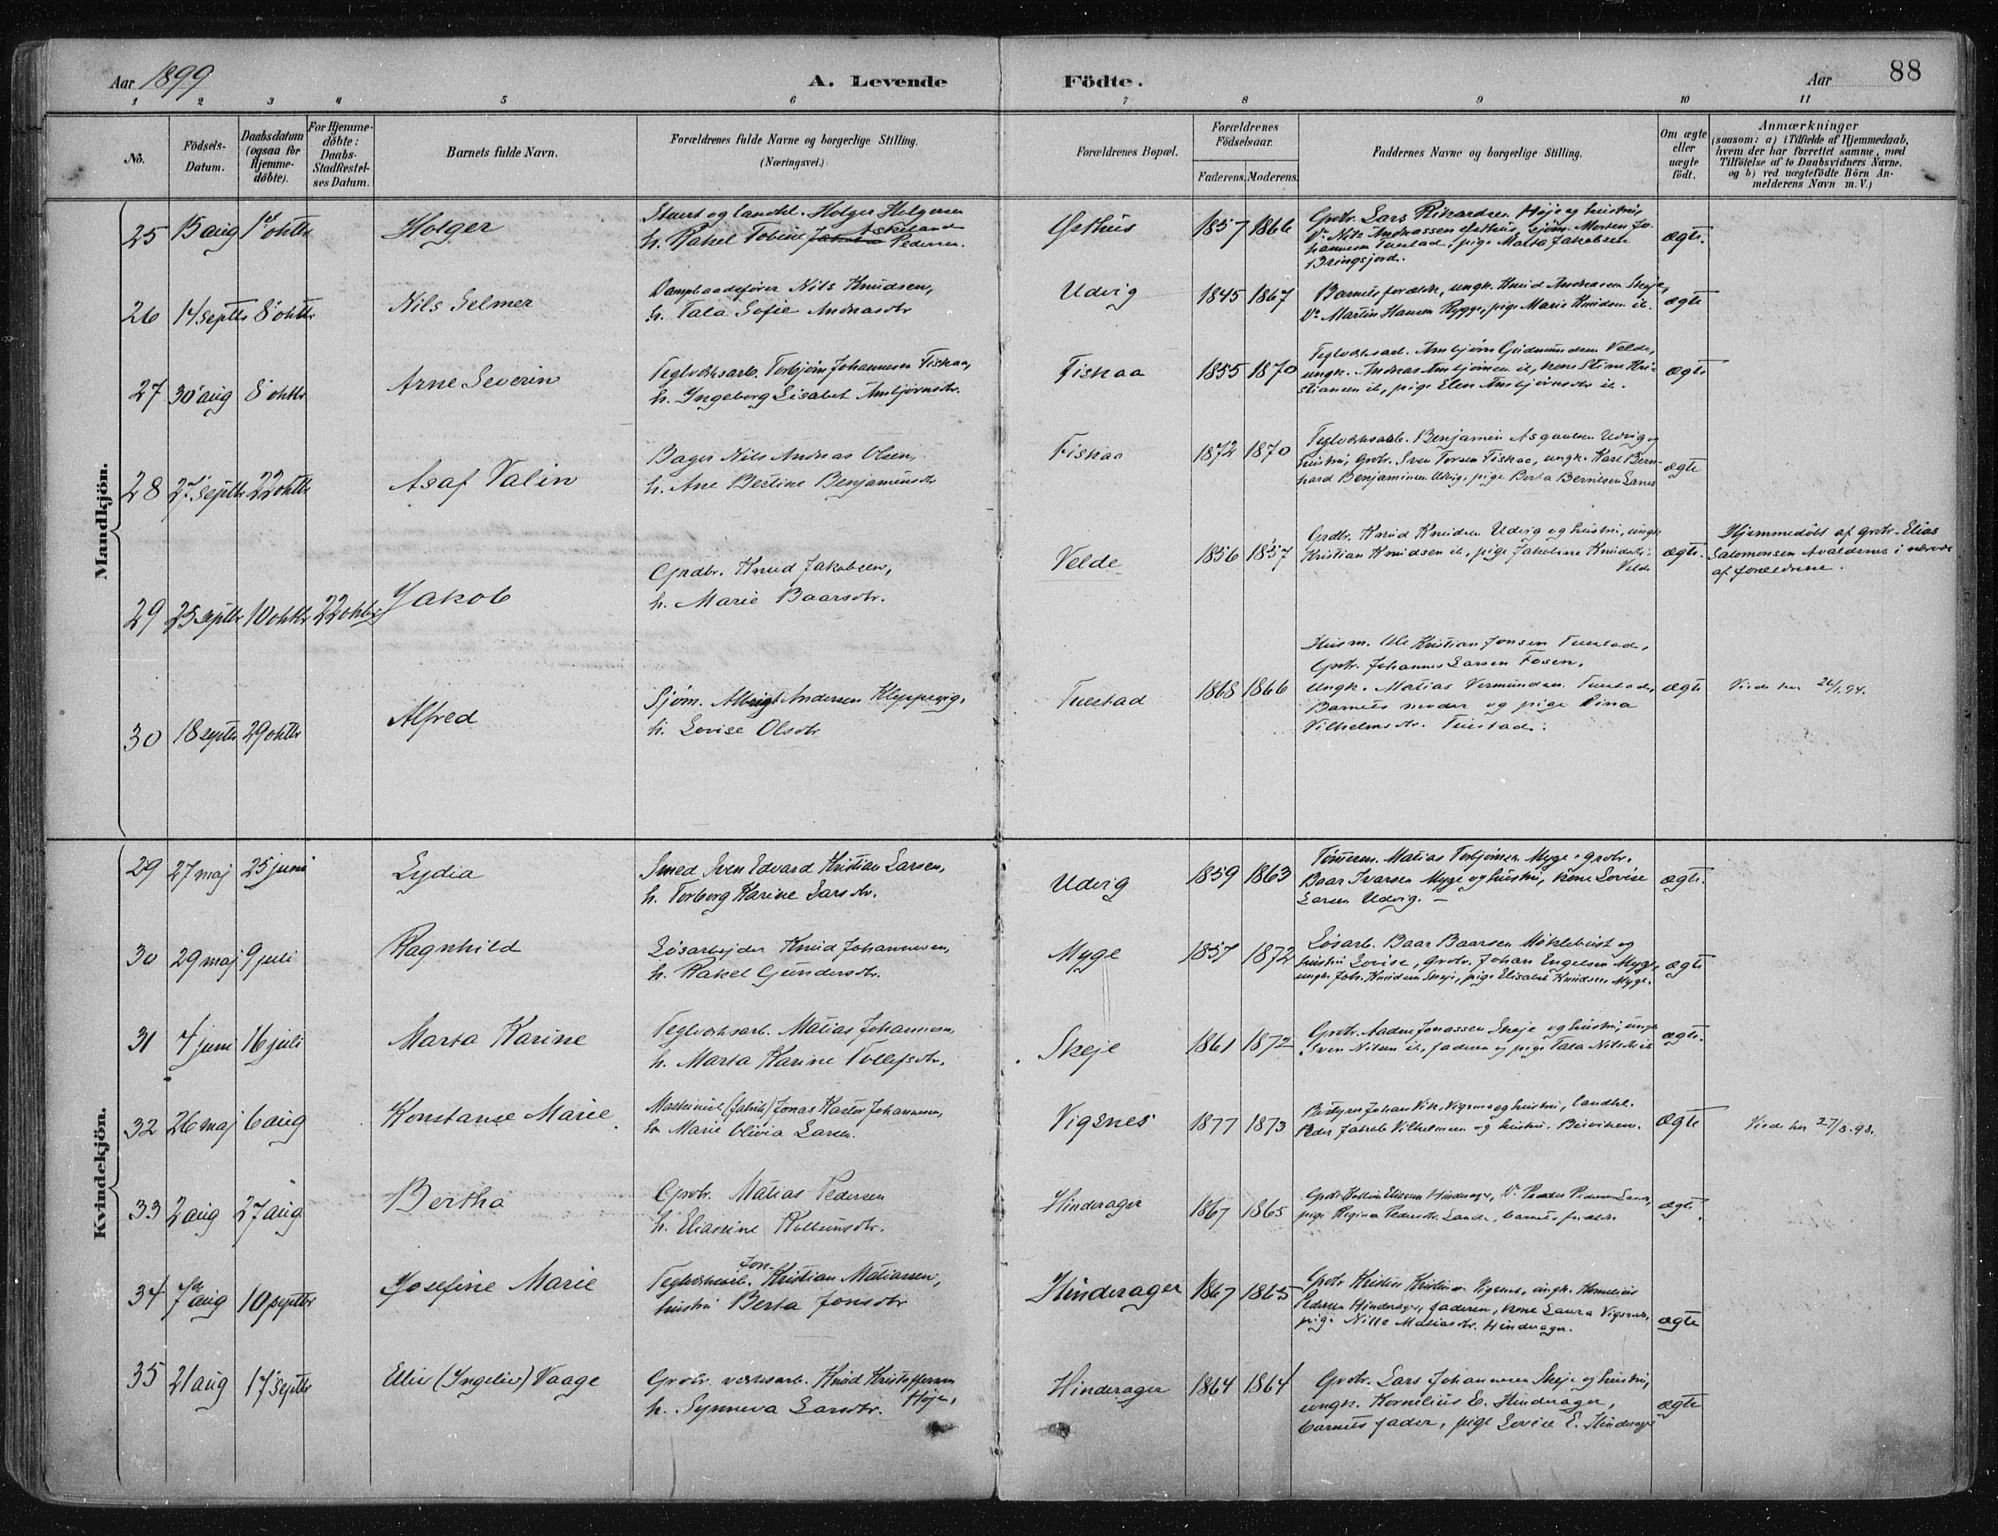 Aar 1899
A. Levende Födte.
Aar 88
1 2 3 4 5 6 7 8 9 10 11
No.
Födsels-Datum.
Daabsdatum (ogsaa for Hjemme-döbte).
For Hjemme-döbte: Daabs-Stadfæstel-ses Datum.
Barnets fulde Navn.
Forældrenes fulde Navne og borgerlige Stilling. (Næringsvei.)
Forældrenes Bopæl.
Forældrenes Födselsaar.
Faderens. Moderens.
Faddernes Navne og borgerlige Stilling.
Om ægte eller uægte födt.
Anmærkninger
(saasom: a) i Tilfælde af Hjemmedaab, hvem der har forrettet samme, med Tilföielse af to Daabsvidners Navne, og b) ved uægtefödte Börn An-melderens Navn m. V.)
Mandkjön.
25 15 aug 1ste oktbr Holger
Stuert og landhl. Holger Holgersen Askeland
h. Rakel Tobine Pedersen.
Østhus 1857 1866
Grdbr. Lars Rikardsen Høje og hustru,
Bringsjord.
ægte.
26 14 septbr 8 oktbr Nils Selmer
Dampbaadsfører Nils Knudsen,
h. Tala Sofie Andreasdtr
Udvig 1845 1867
Barnets forældre, ungk. Knud Andreassen Skeje,
Martin Hansen Rygge, pige Marie Knudsen ib.
ægte
27 30 aug 8 oktbr Arne Severin
Teglverksarb. Torbjørn Johannesen Fiskaa,
h. Ingeborg Lisabet Ambjørnsdtr.
Fiskaa 1855 1870
Teglverksarb. Ambjørn Gudmundsen Velde,
ungk. Andreas Ambjørnsen ib, kone Stine Kri-
stiansen ib, pige Elen Ambjørnsdtr ib.
ægte
28 27 septbr 22 oktbr Asaf Valin
Bager Nils Andreas Olsen,
h. Ane Bertine Benjaminsdtr
Fiskaa 1872 1870
Teglverksarb. Benjamin Asgautsen Udvig og
hustru, Grdbr. Sven Torsen Fiskaa, ungk. Karl Bern-
hard Benjaminsen Udvig, pige Berta Berntsen
ægte
29 25 septbr 10 oktbr 22 oktbr Jakob
Grdbr. Knud Jakobsen,
h. Marie Baarsdtr.
Velde 1856 1857
Grdbr. Knud Knudsen Udvig og hustru, ungk.
Kristian Knudsen ib, pige Jakobine Knudsdtr.
Velde
ægte.
Hjemmedøbt af grdbr. Elias
Salomonsen Avaldsnes i nærvær
af forældrene.
30 18 septbr 29 oktbr Alfred
Sjøm. Albrigt Andersen Kleppevig,
h. Lovise Olsdtr
Tuestad 1868 1866
Husm. Ole Kristian Jonsen Tuestad,
Grdbr. Johannes Larsen Fosen,
ungk. Matias Vermundsen Tuestad,
Barnets moder og pige Vina
Vilhelmsdtr. Tuestad.
ægte
Viede her 26/1 94.
Kvindekjön.
29 27 maj 25 juni Lydia
Smed Sven Edvard Kristian Larsen,
h. Torborg Karine Larsdtr.
Udvig 1859 1863
Matias Torbjørnsen Myge, grdbr.
Baar Ivarsen Myge og hustru, kone Lovise
Larsen Udvig.
ægte.
30 29 maj 9 juli Ragnhild
Løsarbejder Knud Johannesen,
h. Rakel Gundersdtr.
Myge 1857 1872
Løsarb. Baar Baarsen Møklebust og
hustru Lovise, grdbr. Johan Engelsen Myge,
ungk. Joh. Knudsen Skeje, pige Elisabet Knudsen Myge.
ægte
31 4 juni 16 juli Marta Karine
Teglverksarb. Matias Johannesen,
h. Marta Karine Tollefsdtr.
Skeje 1861 1872
Grdbr. Aadne Jonassen Skeje og hustru, ungk.
Sven Nilsen ib, faderen og pige Tala Nilsdtr ib
ægte.
32 26 maj 6 aug Konstanse Marie
Maskinist (fabrik) Jonas Kastor Johannesen,
h. Marie Olivia Larsen.
Vigsnes 1877 1873
Bestyrer Johan Vik, Vigsnes og hustru, landhl.
Peder Jakob Vilhelmsen og hustru.
ægte
Viede her 27/8. 98.
33 2 aug 27 aug Bertha
Grdbr. Matias Pedersen
h. Eliassine Kolbeinsdtr.
Hinderager 1867 1865
Grdbr Kolbein Eliassen Hinderager, Peder Pedersen
pige Regina Pedersdtr. Sande, barnets forældre
ægte.
34 7de aug 10 septbr Josefine Marie
Teglverksarb. Jon Kristian Matiassen,
hustru Berta Jonsdtr
Hinderager 1867 1865
Vigsnes, ungk. Kornelius
Pedersen Hinderager, faderen, kone Laura Vigsnes,
pige Nille Matiasdtr. Hinderager.
ægte
35 21 aug 17 septbr Eliv (Ingeliv) Vaage
Grdbr. verksarb. Knud Kristoffersen Høje,
h. Synneva Larsdtr.
Hinderager 1864 1864
Grdbr. Lars Johannesen Skeje og hustru,
ungk. Kornelius E. Hinderager,
barnets fader, pige Lovise E. Hinderager
ægte